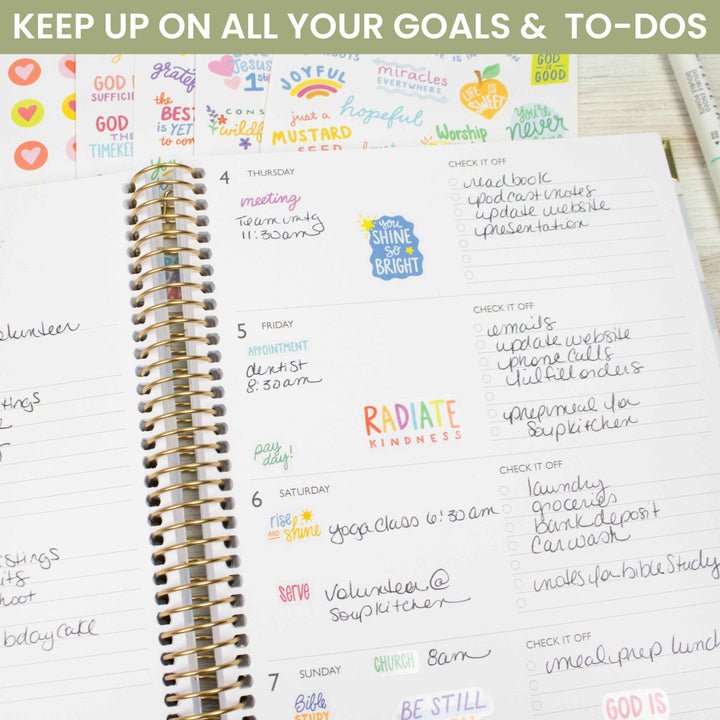 KEEP UP ON ALL YOUR GOALS & TO-DOS
GOD IS
SUFFICIENT
GOD
THE
TIMEKEEPER
grateful
the
BEST
is YET
to come
Jesus
1st
wildflower
JOYFUL
just a hopeful
MUSTARD
SEED
miracles
EVERYWHERE
Worship
LIFE IS
SWEET
You're
never
GOD
IS
GOOD
4 THURSDAY
meeting
Team mtg
11:30am
YOU
SHINE
SO
BRIGHT
CHECK IT OFF
read book
podcast notes
update website
presentation
5 FRIDAY
APPOINTMENT
dentist
8:30am
RADIATE
KINDNESS
pay
day!
CHECK IT OFF
emails
update website
phone calls
fulfill orders
prep meal for
Soup kitchen
6 SATURDAY
rise
AND shine
yoga class 6:30am
serve
volunteer @
Soup kitchen
CHECK IT OFF
laundry
groceries
bank deposit
car wash
notes for bible Study
7 SUNDAY
CHURCH 8am
Bible
STUDY
BE STILL
CHECK IT OFF
meal prep lunch
GOD IS
volunteer
bday cake